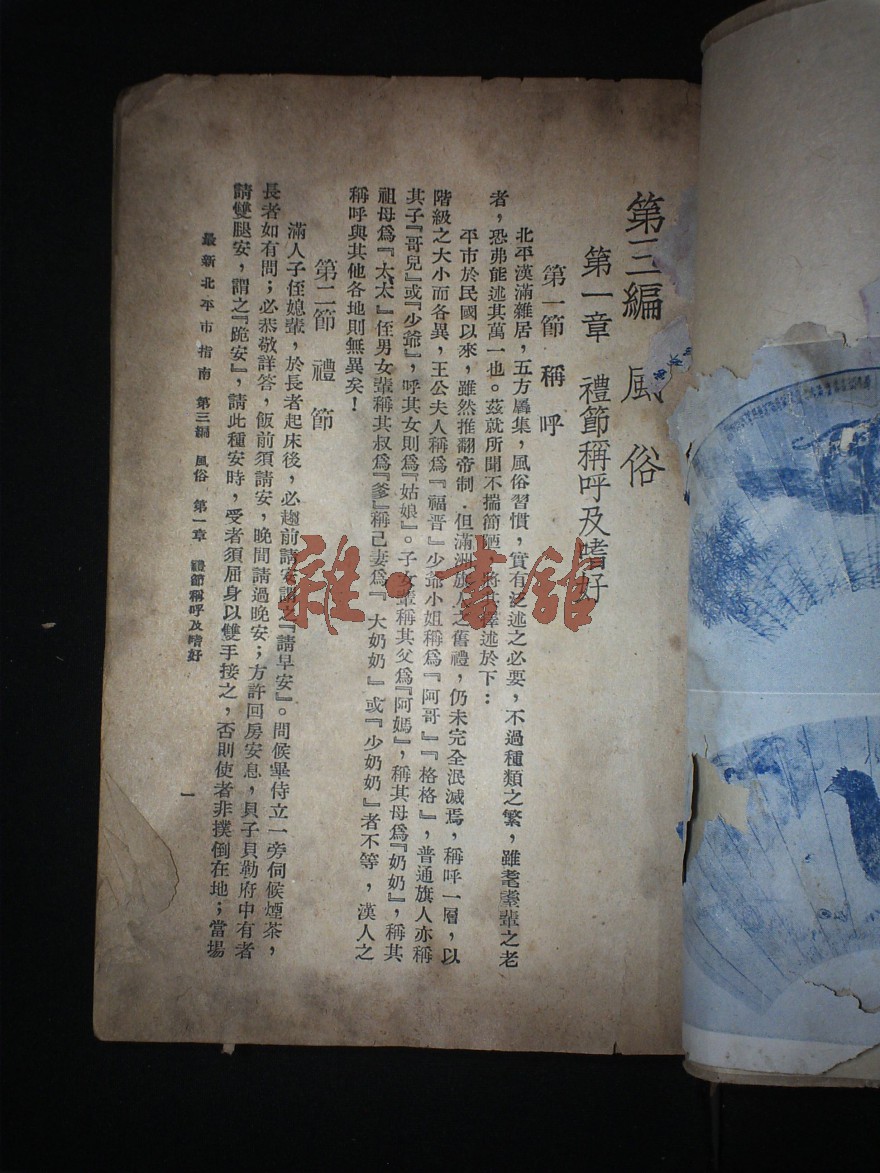 第三編　風俗
第一章　禮節稱呼及嗜好
第一節　稱呼
北平漢滿雜居，五方麕集，風俗習慣，實有泛述之必要，不過種類之繁，雖耄耋輩之老
者，恐弗能述其萬一也。茲就所聞不揣簡陋，將其擇述於下：
平市於民國以來，雖然推翻帝制．但滿洲旗人之舊禮，仍未完全泯滅焉，稱呼一層，以
階級之大小而各異，王公夫人稱爲『福晋』少爺小姐稱爲『阿哥』『格格』，普通旗人亦稱
其子『哥兒』或『少爺』，呼其女則爲『姑娘』。子女輩稱其父爲『阿嫣』，稱其母爲『奶奶』，稱其
祖母爲『太太』侄男女輩稱其叔爲『爹』稱己妻爲『大奶奶』或『少奶奶』者不等，漢人之
稱呼與其他各地則無異矣！
第二節　禮節
滿人子侄媳輩，於長者起床後，必趨前請安謂之『請早安』。問候畢侍立一旁伺候煙茶，
長者如有問；必恭敬詳答，飯前須請安，晚間請過晚安；方許回房安息，貝子貝勒府中有者
請雙腿安，謂之『跪安』，請此種安時，受者須屈身以雙手接之，否則使者非撲倒在地；當場
最新北平市指南　第三編　風俗　第一章　禮節稱呼及嗜好
一
雜·書館